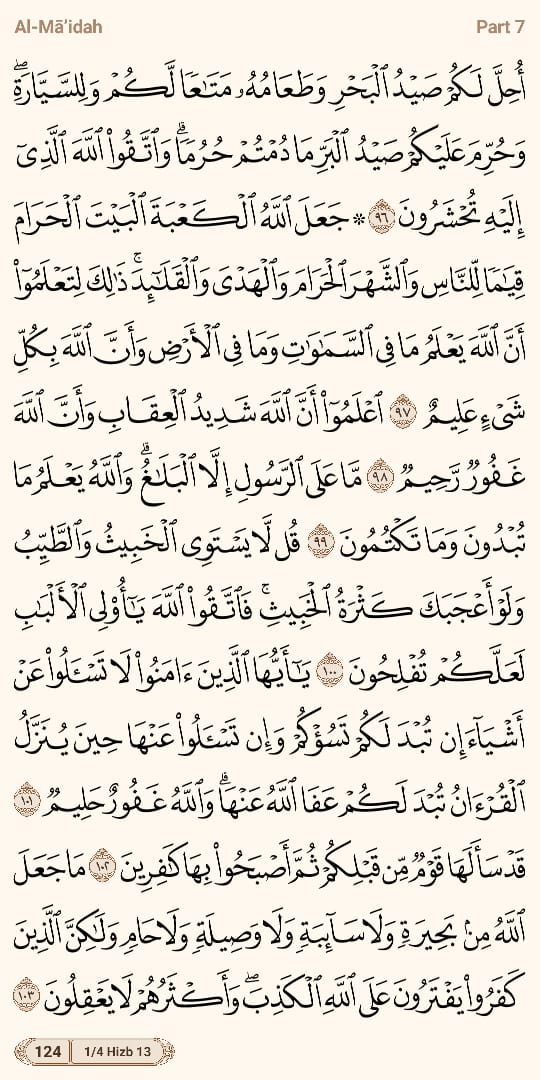 Al-Mā’idah
Part 7
أُحِلَّ لَكُمْ صَيْدُ ٱلْبَحْرِ وَطَعَامُهُۥ مَتَٰعًا لَّكُمْ وَلِلسَّيَّارَةِۖ
وَحُرِّمَ عَلَيْكُمْ صَيْدُ ٱلْبَرِّ مَا دُمْتُمْ حُرُمًاۗ وَٱتَّقُوا۟ ٱللَّهَ ٱلَّذِىٓ
إِلَيْهِ تُحْشَرُونَ ٩٦ ۞ جَعَلَ ٱللَّهُ ٱلْكَعْبَةَ ٱلْبَيْتَ ٱلْحَرَامَ
قِيَٰمًا لِّلنَّاسِ وَٱلشَّهْرَ ٱلْحَرَامَ وَٱلْهَدْىَ وَٱلْقَلَٰٓئِدَۚ ذَٰلِكَ لِتَعْلَمُوٓا۟
أَنَّ ٱللَّهَ يَعْلَمُ مَا فِى ٱلسَّمَٰوَٰتِ وَمَا فِى ٱلْأَرْضِ وَأَنَّ ٱللَّهَ بِكُلِّ
شَىْءٍ عَلِيمٌ ٩٧ ٱعْلَمُوٓا۟ أَنَّ ٱللَّهَ شَدِيدُ ٱلْعِقَابِ وَأَنَّ ٱللَّهَ
غَفُورٌ رَّحِيمٌ ٩٨ مَّا عَلَى ٱلرَّسُولِ إِلَّا ٱلْبَلَٰغُۗ وَٱللَّهُ يَعْلَمُ مَا
تُبْدُونَ وَمَا تَكْتُمُونَ ٩٩ قُل لَّا يَسْتَوِى ٱلْخَبِيثُ وَٱلطَّيِّبُ
وَلَوْ أَعْجَبَكَ كَثْرَةُ ٱلْخَبِيثِۚ فَٱتَّقُوا۟ ٱللَّهَ يَٰٓأُو۟لِى ٱلْأَلْبَٰبِ
لَعَلَّكُمْ تُفْلِحُونَ ١٠٠ يَٰٓأَيُّهَا ٱلَّذِينَ ءَامَنُوا۟ لَا تَسْـَٔلُوا۟ عَنْ
أَشْيَآءَ إِن تُبْدَ لَكُمْ تَسُؤْكُمْ وَإِن تَسْـَٔلُوا۟ عَنْهَا حِينَ يُنَزَّلُ
ٱلْقُرْءَانُ تُبْدَ لَكُمْ عَفَا ٱللَّهُ عَنْهَاۗ وَٱللَّهُ غَفُورٌ حَلِيمٌ ١٠١
قَدْ سَأَلَهَا قَوْمٌ مِّن قَبْلِكُمْ ثُمَّ أَصْبَحُوا۟ بِهَا كَٰفِرِينَ ١٠٢ مَا جَعَلَ
ٱللَّهُ مِنۢ بَحِيرَةٍ وَلَا سَآئِبَةٍ وَلَا وَصِيلَةٍ وَلَا حَامٍ وَلَٰكِنَّ ٱلَّذِينَ
كَفَرُوا۟ يَفْتَرُونَ عَلَى ٱللَّهِ ٱلْكَذِبَۖ وَأَكْثَرُهُمْ لَا يَعْقِلُونَ ١٠٣
124 1/4 Hizb 13